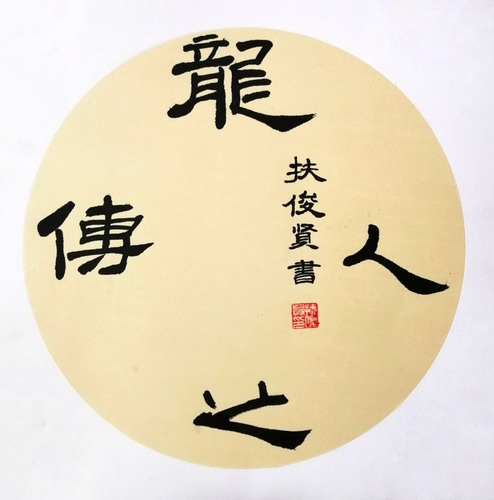 龍
之
傳
人
扶俊賢書